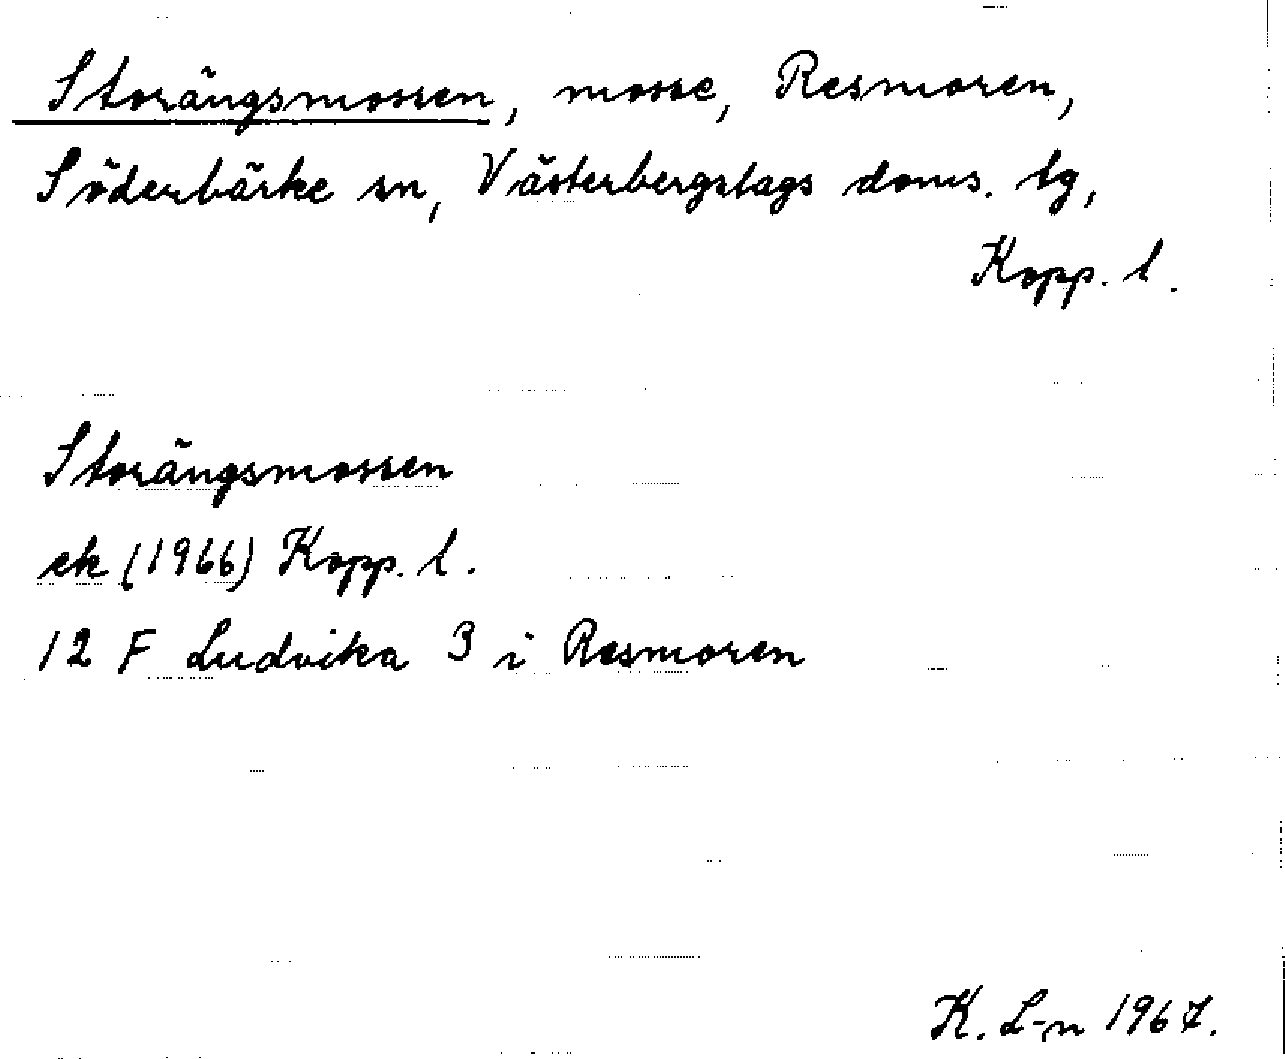 Storängsmossen, mosse, Resmoren,
Söderbärke sn, Västerbergslags doms. lg,
Kopp. l.
Storängsmossen
ek (1966) Kopp. l.
12 F Ludvika 3 i Resmoren
K. L-n 1967.